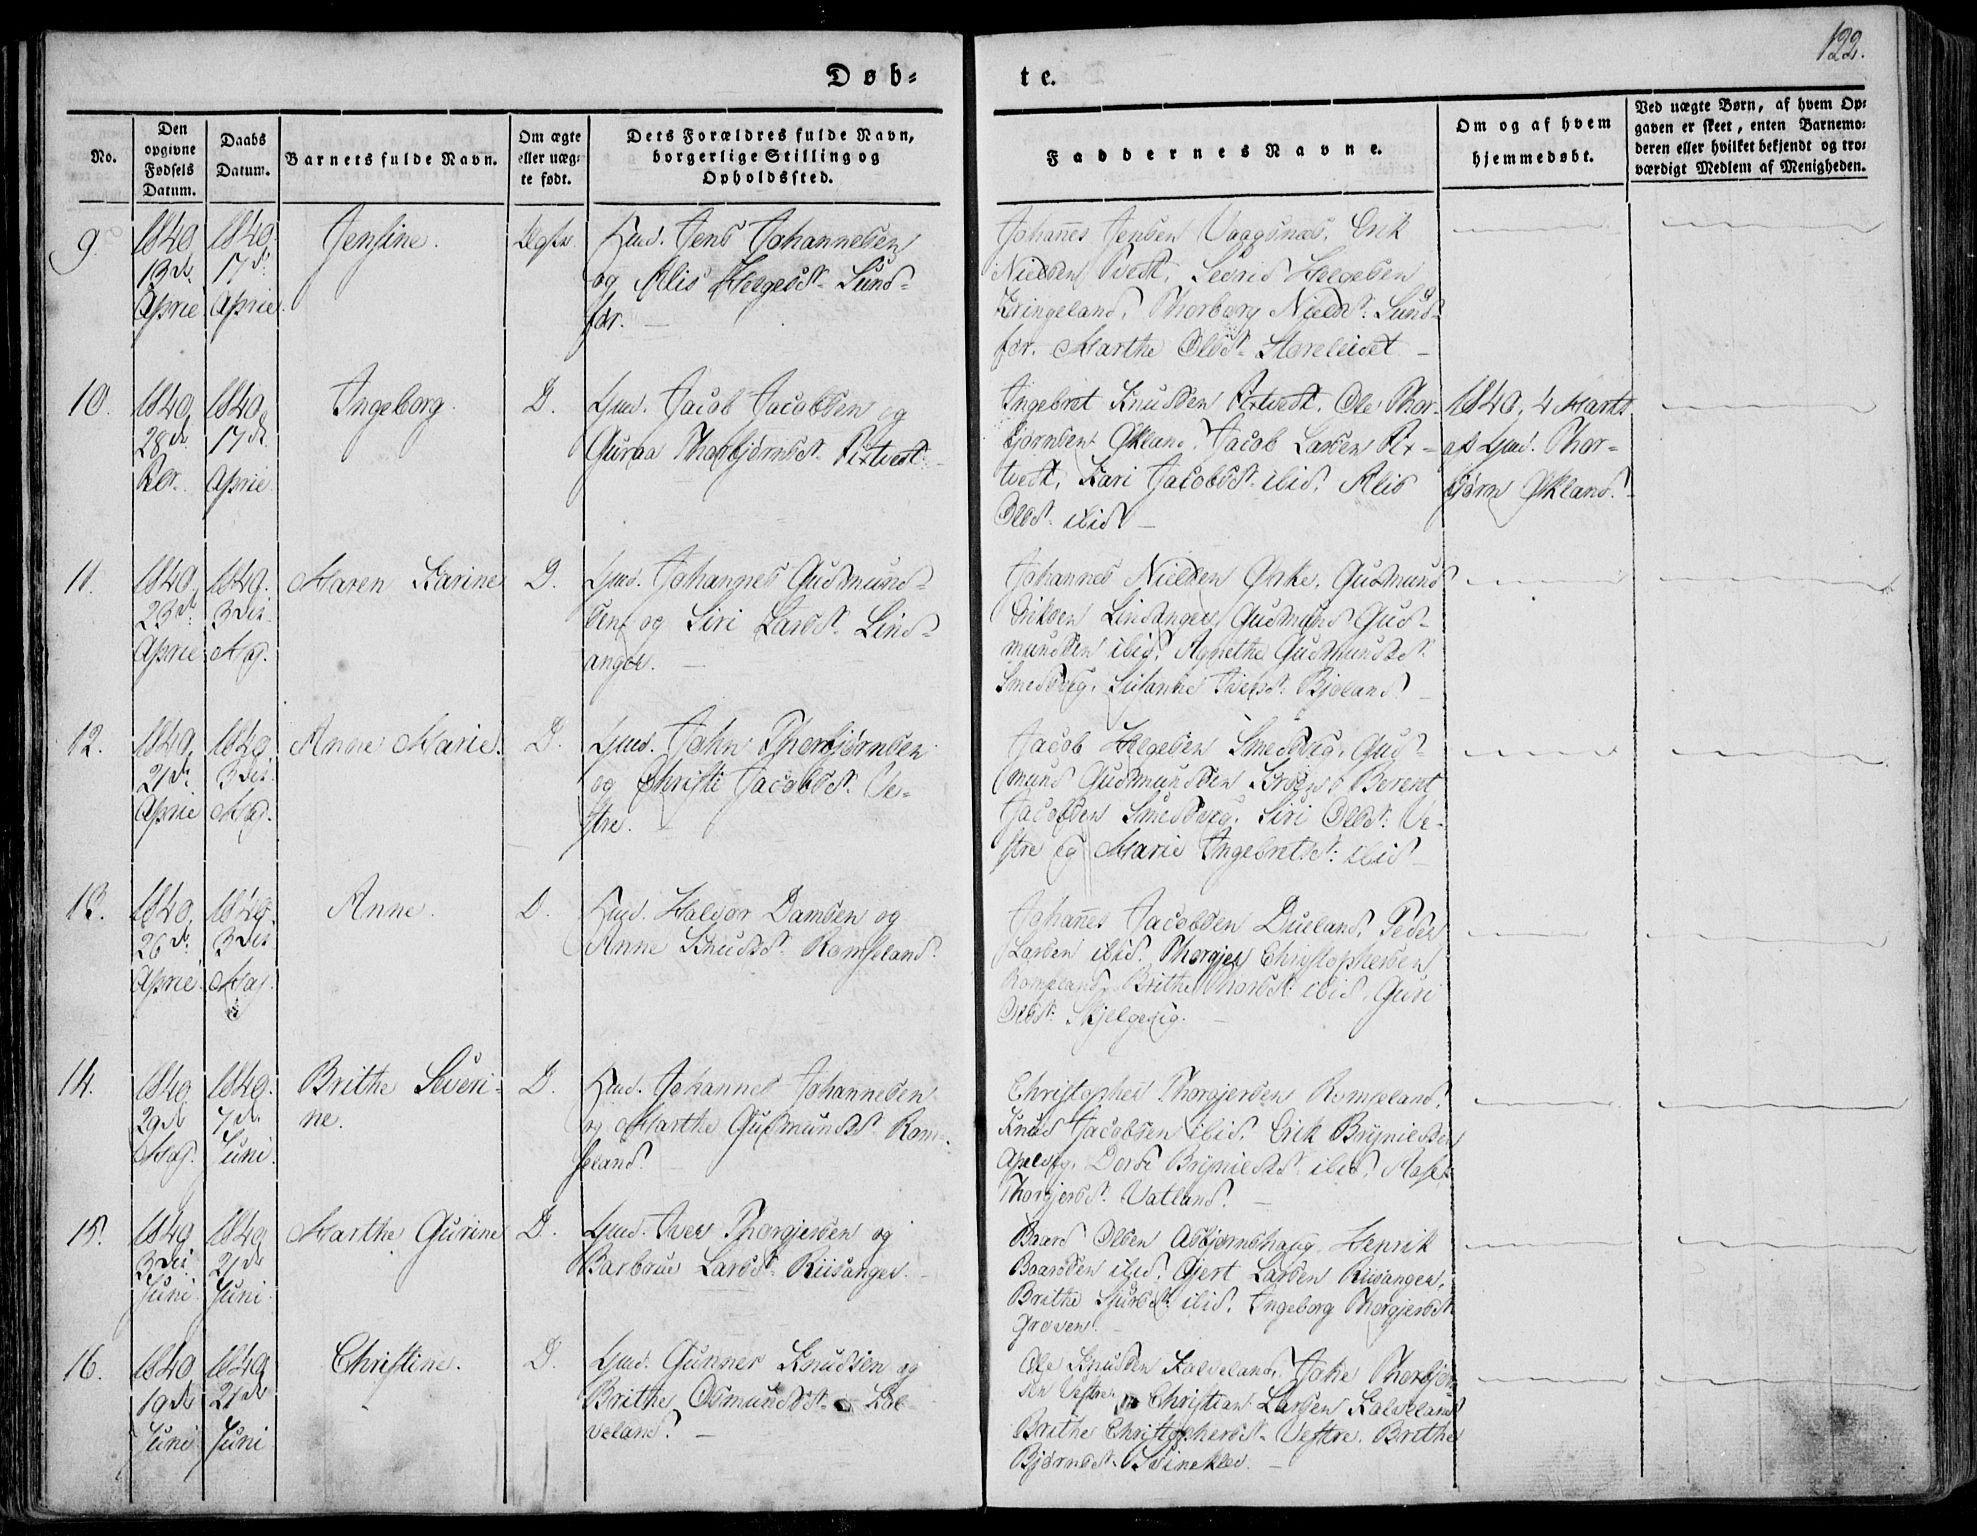 122.
Døb-
te.
No.
Den
opgivne
Fødsels
Datum.
Daabs
Datum.
Barnets fulde Navn.
Om ægte
eller uæg-
te født.
Dets Forældres fulde Navn,
borgerlige Stilling og
Opholdssted.
Faddernes Navne.
Om og af hvem
hjemmedøbt.
Ved uægte Børn, af hvem Op-
gaven er skeet, enten Barnemo-
deren eller hvilket bekjendt og tro-
værdigt Medlem af Menigheden.
9.
1840.
13de
April
1840
17de
April.
Jensine.
Ægte.
Jens Johannesen
og Alis Helgesd. Sund-
før.
Johañes Jensen Vaagsnæs, Erik
Nielsen Tvedt, Helgesen
Kringeland, Thorborg Nielsd: Sund-
før. Marthe Olsd.
10.
1840.
28de
1840.
17de
April
Ingeborg.
D.
Gmd. Jacob Jacobsen og
Guroa Thorbjørnsd.
Ingebret Knudsen Ole Thor-
bjørnsen Økland, Jacob Larsen
tvedt, Kari Jacobsd. ibid, Alis
Olsd. ibid
1840, 4 Marts
af Gmd. Thor-
bjørn Økland.
11.
1840.
23de
April
1840.
3die
Maj.
Maren Karine
D.
Gmd. Johannes Gudmund-
sen og Siri Larsd. Lind-
anger.
Johannes Nielsen Gudmund
Eriksen Lindanger, Gudmund Gud-
mundsen ibid, Agnethe Gudmundsd.
Smedsvig, Susanne Iversd: Bjeland
12.
1840.
21de
April
1840
3die
Maj.
Anne Marie.
D.
Gmd. John Thorbjørnsen
og Christi Jacobsd. Ve-
stre.
Jacob Helgesen Smedsvig, Gud-
mund Gudmundsen Berent
Jacobsen Smedsvig, Siri Olsd: Ve-
stre og Marie Ingebretsd: ibid
13.
1840.
26de
April
1840.
3die
Maj.
Anne.
D.
Halvor Damsen og
Anne Knudsd. Romseland.
Johañes Jacobsen Dueland, Peder
Larsen ibid. Thorgjer Christophersen
Romseland, Brithe Thorsd: ibid, Guri
Olsd:
14.
1840
29de
Maj.
1840.
7de
Juni.
Brithe Severi-
ne.
D.
Johannes Johannesen
og Marthe Gudmundsd. Rom-
seland.
Christopher Thorgjersen Romseland,
Knud Jacobsen ibid, Erik Brynildsen
Apelvig, Dorde Brynildsd. ibid,
Thorgjersd. Vatland.
15.
1840
3die
Juni
1840
21de
Juni.
Marthe Gurine
D.
Gmd. Iver Thorgjersen og
Barbrue Larsd. Riisanger.
Baard Olsen Asbjørnshaug, Henrik
Baardsen ibid, Gjert Larsen Riisanger,
Brithe Sjursd. ibid, Ingeborg Thorgjersd.
Graven.
16.
1840
10de
Juni
1840
21de
Juni
Christine.
D.
Gmd. Gunner Knudsen og
Brithe Osmundsd. Kal-
veland.
Ole Knudsen Kalveland, John Thorbjørn-
sen Vestre, Christian Larsen Kalveland
Brithe Christophersd. Vestre. Brithe
Bjørnsd.